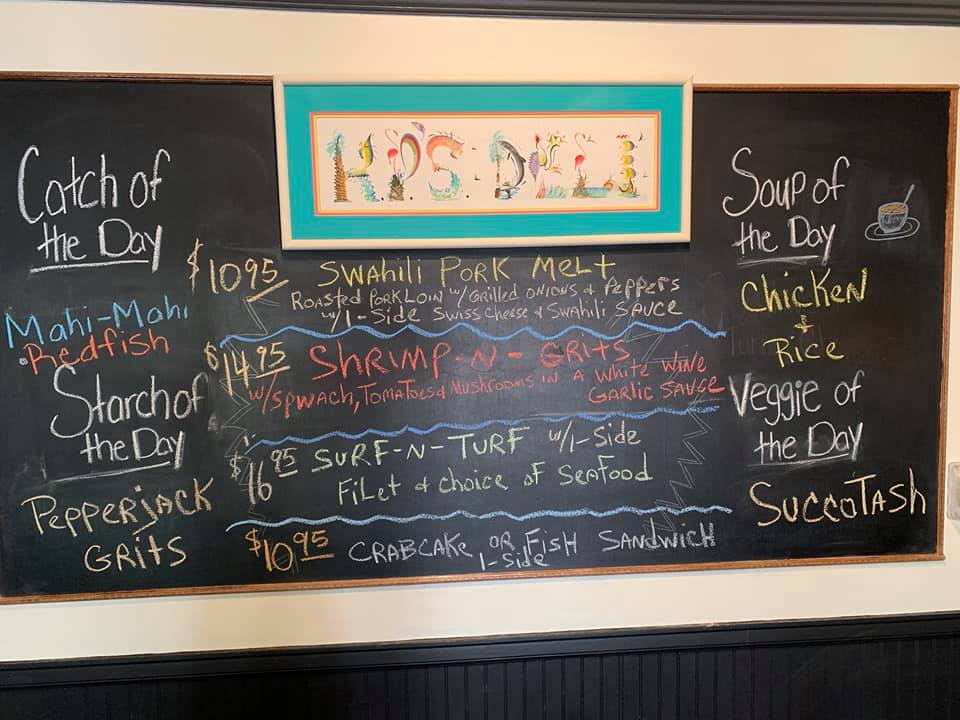 H.P.'S. DELI
Catch of
the Day
Mahi-Mahi
Redfish
Starch of
the Day
Pepperjack
Grits
$10.95 Swahili Pork Melt
Roasted Pork Loin w/ Grilled Onions & Peppers
w/ 1-Side Swiss Cheese & Swahili Sauce
$14.95 Shrimp-N-Grits
w/ Spinach, Tomatoes & Mushrooms in a White Wine
Garlic Sauce
$16.95 Surf-N-Turf w/ 1-Side
Filet & choice of Seafood
$10.95 Crabcake or Fish Sandwich
1-Side
Soup of
the Day
Chicken
&
Rice
Veggie of
the Day
SuccoTash